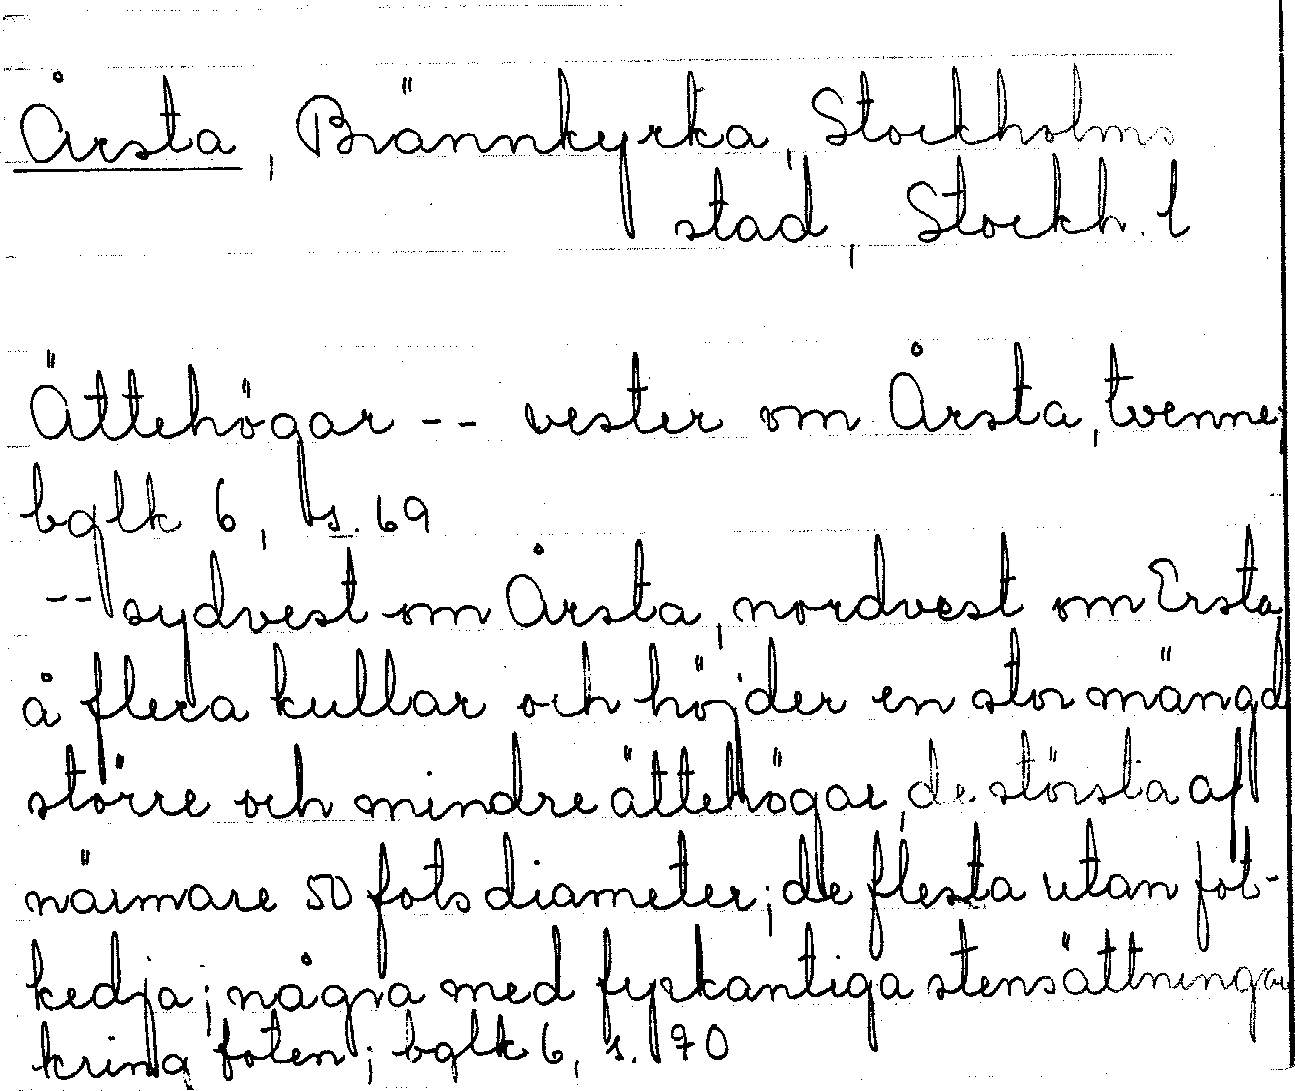 Årsta, Brännkyrka, Stockholms
stad, Stockh. l
Ättehögar -- vester om Årsta, tvenne;
bglk 6, s. 69
-- sydvest om Årsta, nordvest om Ersta,
å flera kullar och höjder en stor mängd
större och mindre ättehögar, de största af
närmare 50 fots diameter; de flesta utan fot-
kedja; några med fyrkantiga stensättningar
kring foten; bglk 6, s. 70